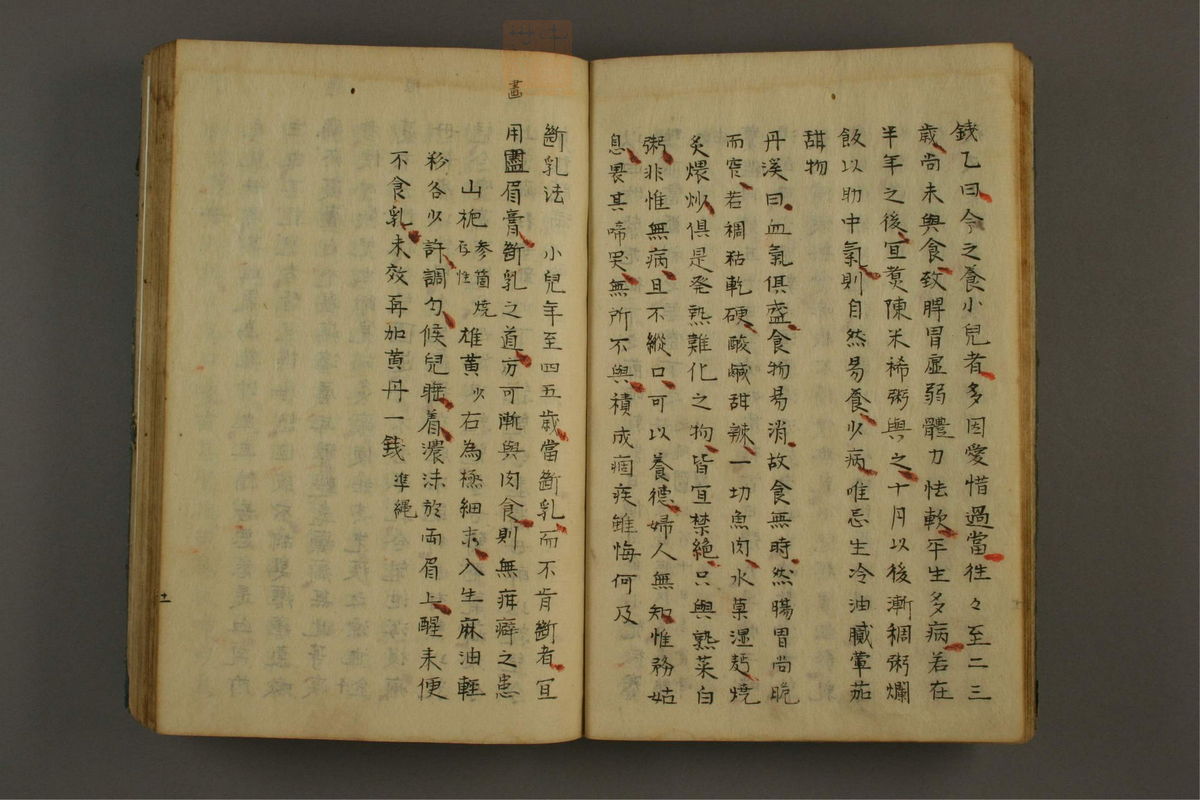 錢乙曰今之養小兒者多因愛惜過當徃々至二三
歳尚未與食致脾胃虛弱體力怯軟平生多病若在
半年之後宜煑陳米稀粥與之十月以後漸稠粥爛
飯以助中氣則自然易食少病唯忌生冷油膩葷茄
甜物
丹溪曰血氣俱盛食物易消故食無時然腸胃尚脆
而窄若稠粘乾硬酸鹹甜辣一切魚肉水菓湿麪燒
炙煨炒俱是発熱難化之物皆宜禁絶只與熟菜白
粥非惟無病且不縱口可以養德婦人無知惟務姑
息畏其啼哭無所不與積成痼疾雖悔何及
斷乳法 小兒年至四五歳當斷乳而不肯斷者宜
畫
用畫眉膏斷乳之道方可漸與肉食則無疳癖之患
山梔 参箇燒存性 雄黄 少 右為極細末入生麻油輕
粉各少許調勻候兒睡着濃沫於両眉上醒来便
不食乳未效再加黄丹一錢 準繩